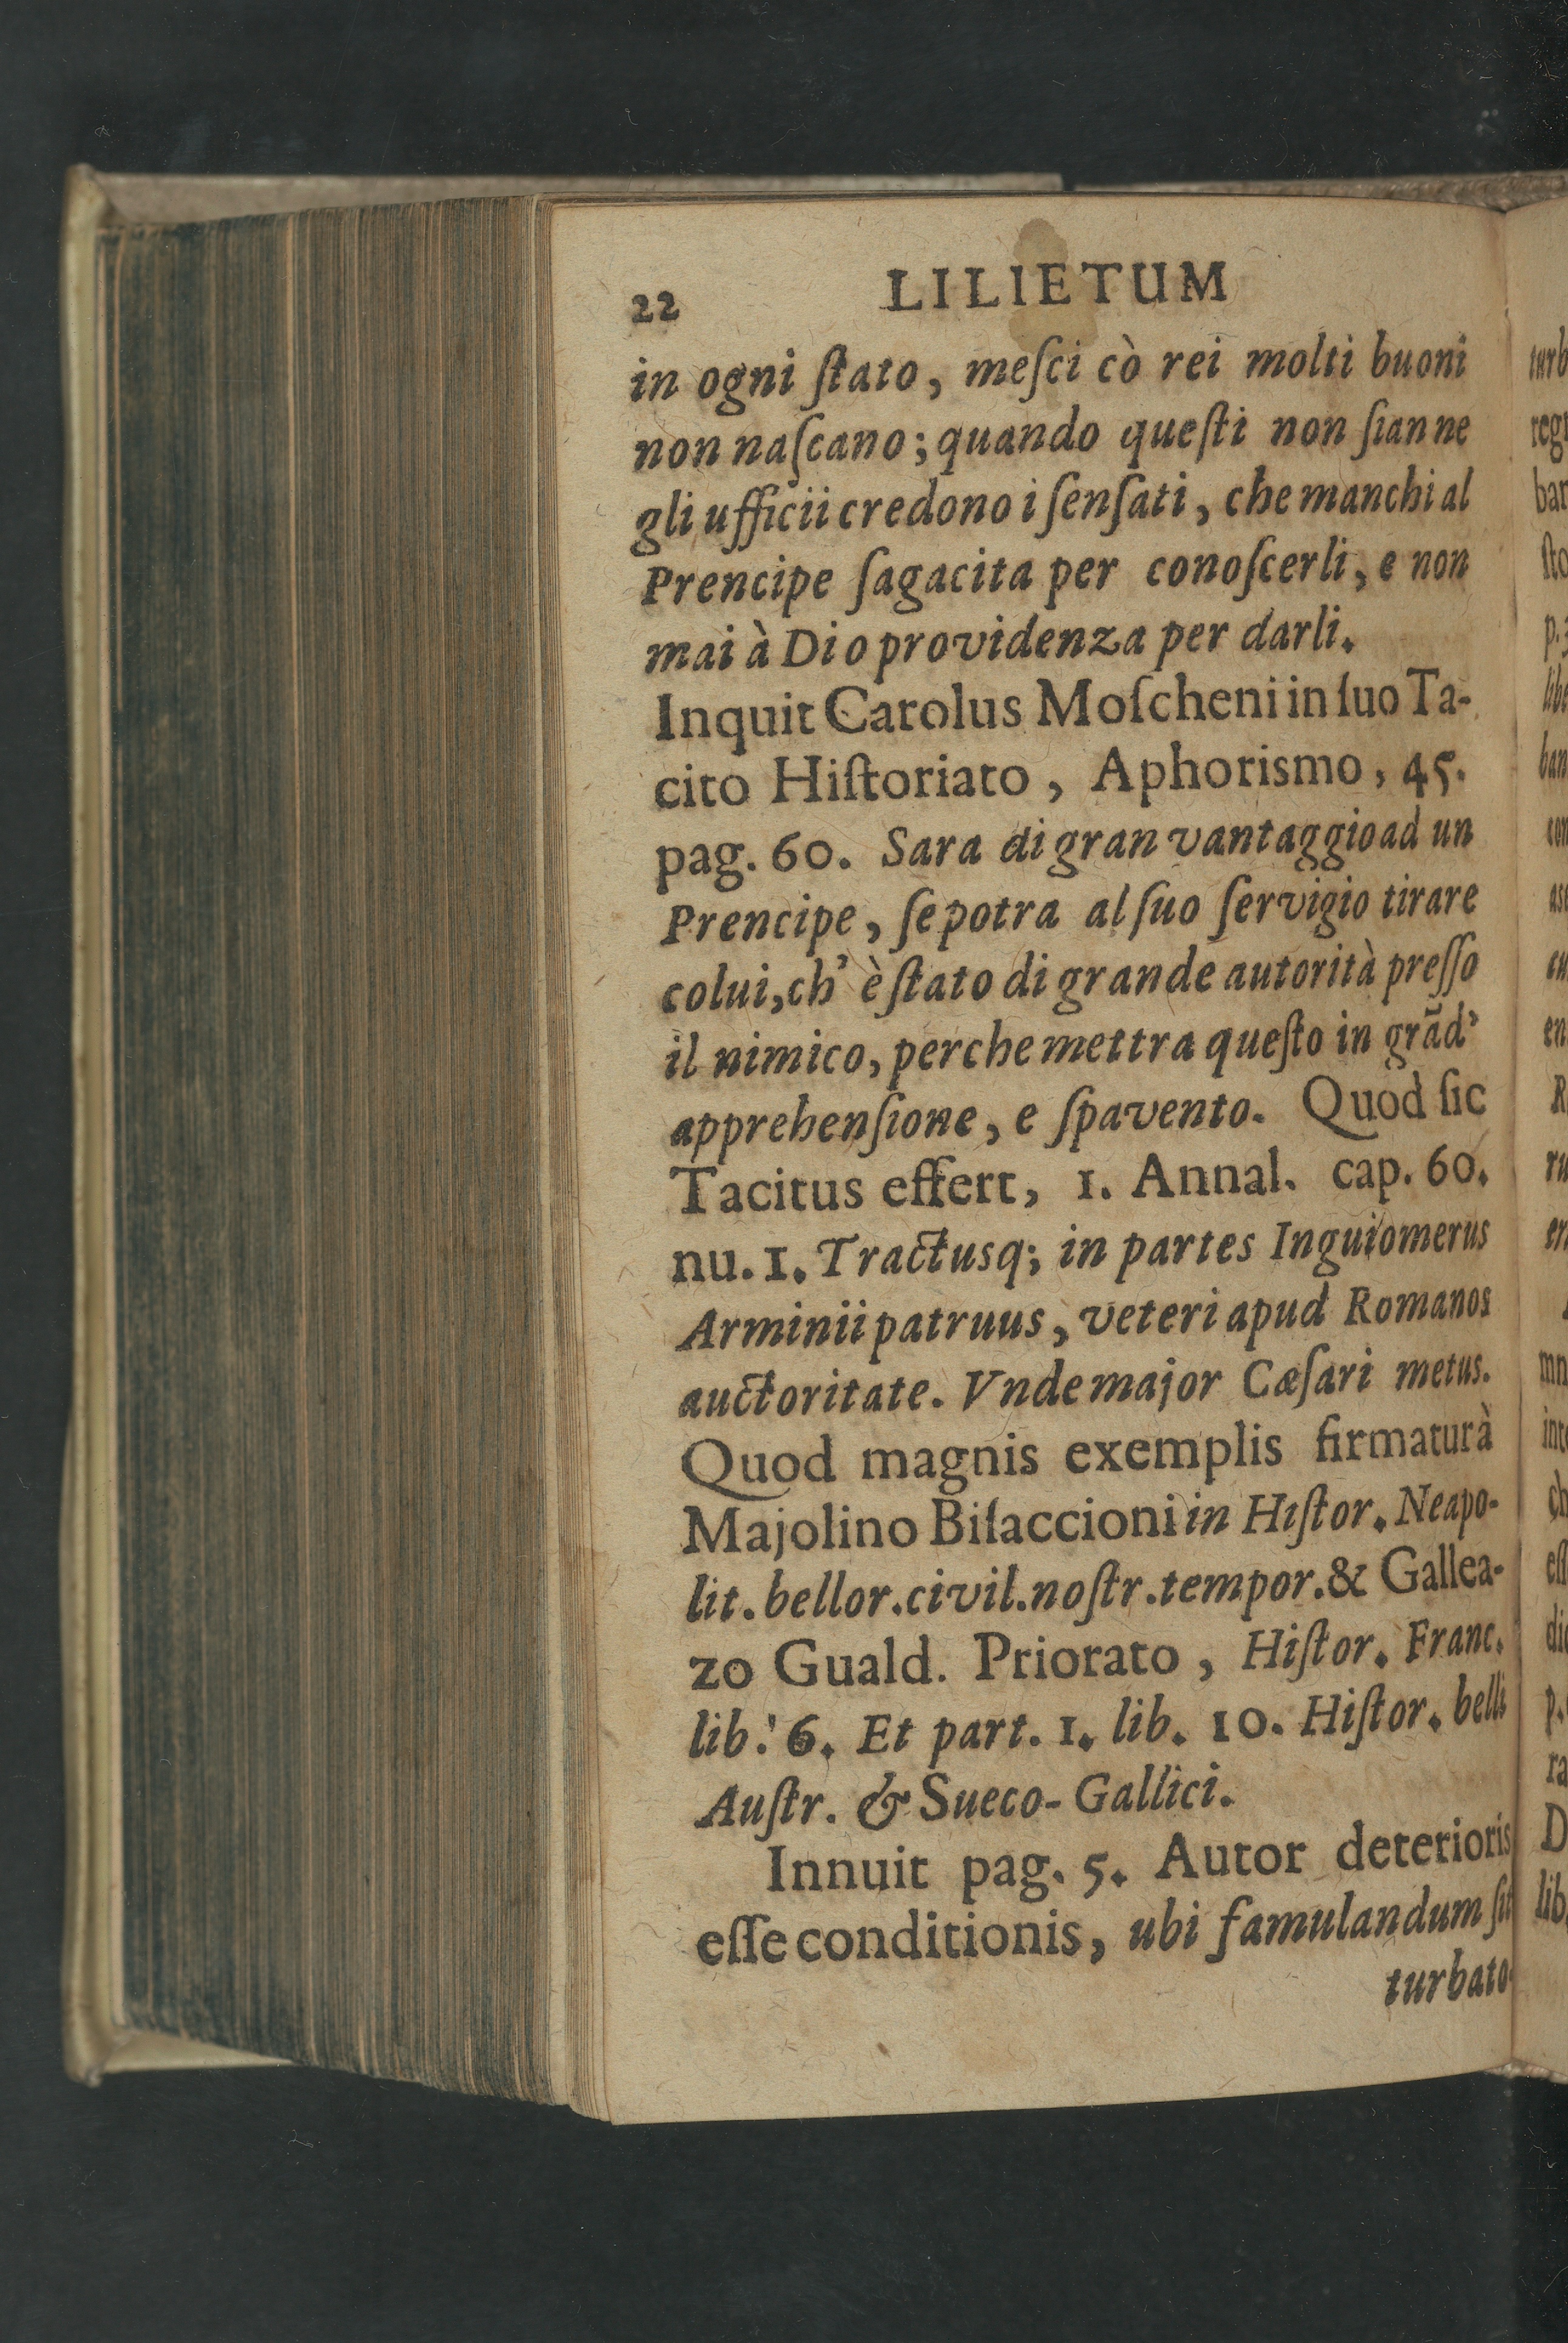 22 LILIETUM
in ogni ſtato, meſci cò rei molti buoni
non naſcano; quando queſti non ſian ne
gli ufficii credono i ſenſati, che manchi al
Prencipe ſagacita per conoſcerli, e non
mai à Dio providenza per darli.
Inquit Carolus Moſcheni in ſuo Ta-
cito Hiſtoriato, Aphorismo, 45.
pag. 60. Sara di gran vantaggio ad un
Prencipe, ſe potra al ſuo ſervigio tirare
colui, ch' è ſtato di grande autorità preſſo
il nimico, perche mettra queſto in grãd'
apprehenſione, e ſpavento. Quod ſic
Tacitus effert, 1. Annal. cap. 60.
nu. 1. Tractusq; in partes Inguiomerus
Arminii patruus, veteri apud Romanos
auctoritate. Vnde major Cæſari metus.
Quod magnis exemplis firmatur à
Majolino Biſaccioni in Hiſtor. Neapo-
lit. bellor. civil. noſtr. tempor. & Gallea-
zo Guald. Priorato, Hiſtor. Franc.
lib. 6. Et part. 1. lib. 10. Hiſtor. belli
Auſtr. & Sueco-Gallici.
Innuit pag. 5. Autor deterioris
eſſe conditionis, ubi famulandum ſit
turbato